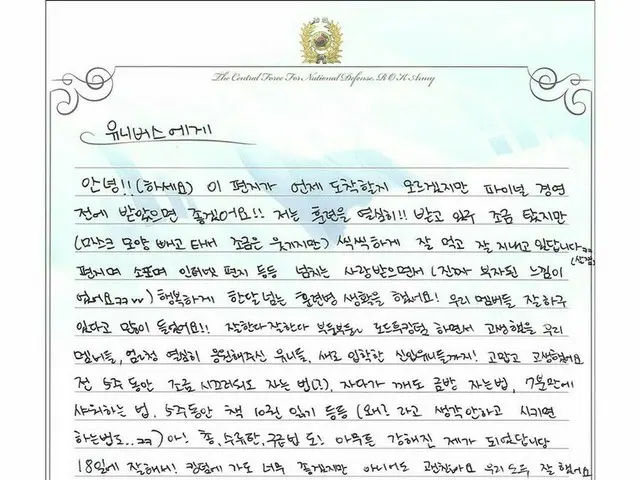 The Central Force For National Defense. R O K Army
유니버스에게
안녕!!(하세요) 이 편지가 언제 도착할지 모르겠지만 파이널 경연
전에 받았으면 좋겠어요!! 저는 훈련을 열심히!! 받고 있구 조금 탔지만
(마스크 모양 빼고 타버려 조금은 웃기지만) 씩씩하게 잘 먹고 잘 지내고 있답니다ㅋㅋ
편지며 소포며 인터넷 편지 등등 넘치는 사랑받으면서 (진짜 부자된 느낌이
었어요ㅋㅋㅠ) 행복하게 한달 넘는 훈련병 생활을 했어요! 우리 멤버들 잘하구
있다고 많이 들었어요!! 잘한다잘한다 부둥부둥.. 로드투킹덤 하면서 고생했을 우리
멤버들, 엄청 열심히 응원해주신 유니들, 새로 입학한 신입유니들까지! 고맙고 고생했어요
전 5주 동안 조금 시끄러워도 자는 법(?), 자다가 깨도 금방 자는법, 7분만에
샤워하는 법, 5주동안 책 10권 읽기 등등 (왜? 라고 생각안하고 시키면
하는법도..ㅋㅋ) 아! 총, 수류탄, 구급법 도! 아무튼 강해진 제가 되었답니다
18일에 잘해서! 킹덤에 가도 너무 좋겠지만 아니어도 괜찮아요 우리 모두 잘 했어요